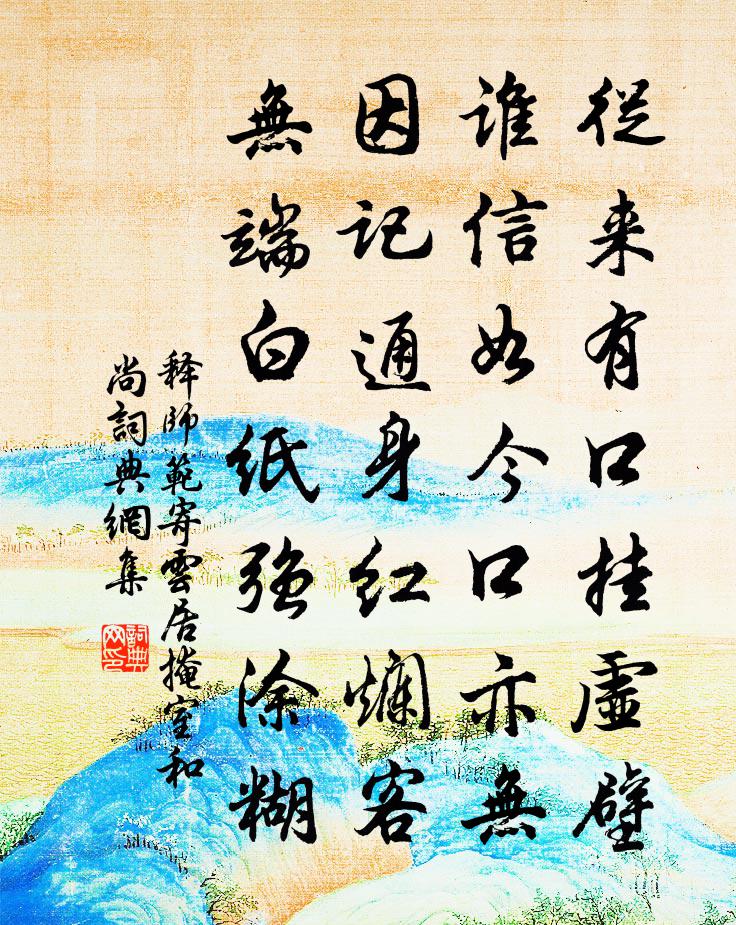 從来有口挂虛壁
誰信如今口亦無
因记通身红爛客
無端白纸強涂糊
释師範寄雲居掩室和
尚詞典網集
詞典
网印